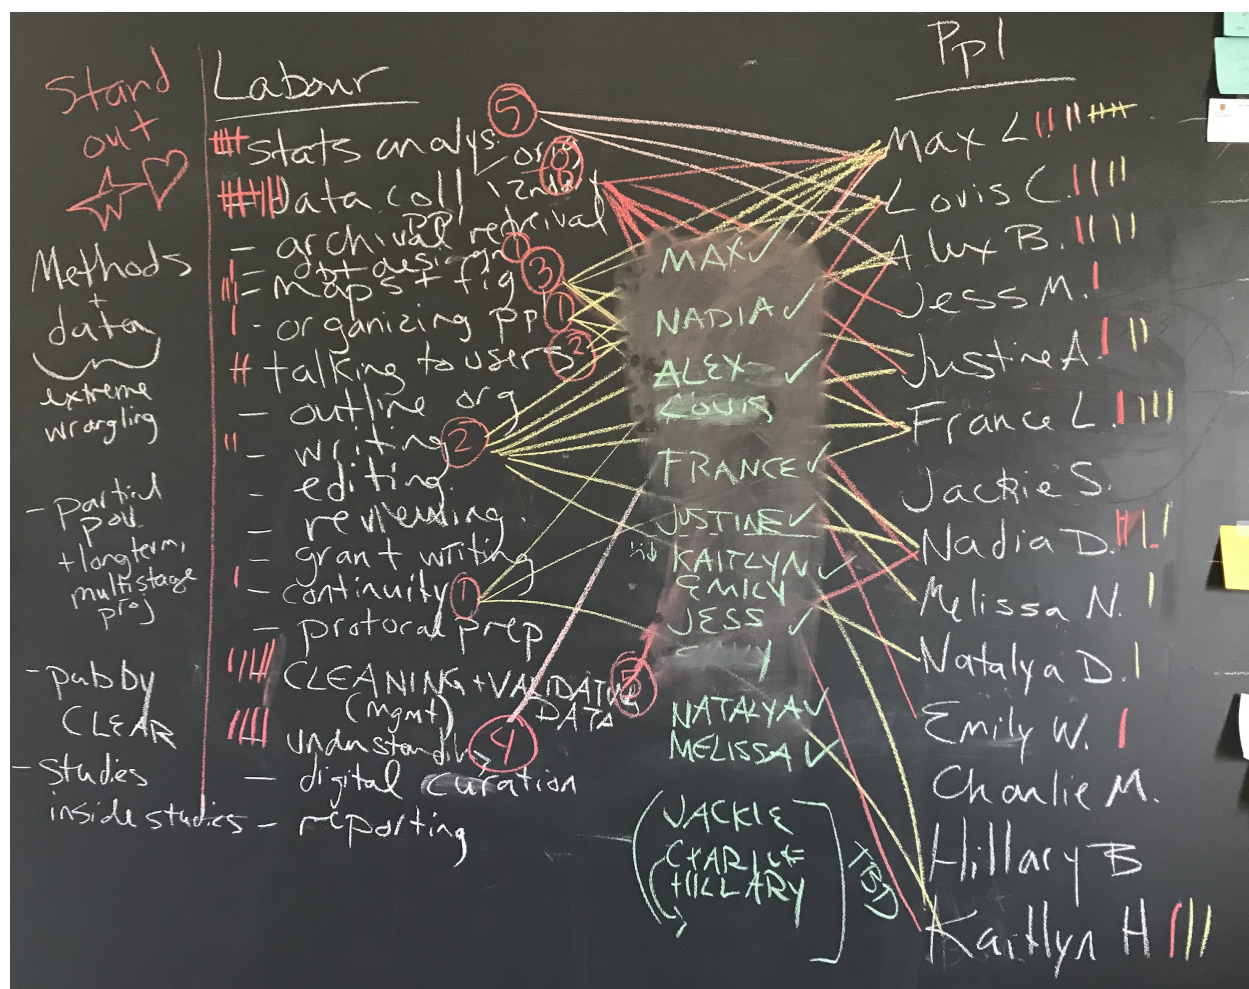 Stand
out
Methods
+
data
extreme
wrangling
- partial
+ longterm,
multistage
proj
- pubby
CLEAR
- studies
inside studies
Labour
stats analys.
Data coll
orig
pp
- archival retrieval
- maps + fig
- organizing pp
talking to users
- outline org
- writing
- editing
- reviewing
- grant writing
- continuity
- protocal prep
CLEANING + VALIDATING
(mgmt) DATA
understanding
- digital curation
- reporting
5
8
1
3
1
2
2
1
5
4
MAX ✓
NADIA ✓
ALEX ✓
LOUIS
FRANCE ✓
JUSTINE ✓
KAITLYN ✓
EMILY
JESS ✓
NATALYA ✓
MELISSA ✓
JACKIE
CHARLIE
HILLARY
TBD
Ppl
Max L
Louis C.
Alux B.
Jess M.
Justine A.
France L.
Jackie S.
Nadia D.
Melissa N.
Natalya D.
Emily W.
Charlie M.
Hillary B
Kaitlyn H